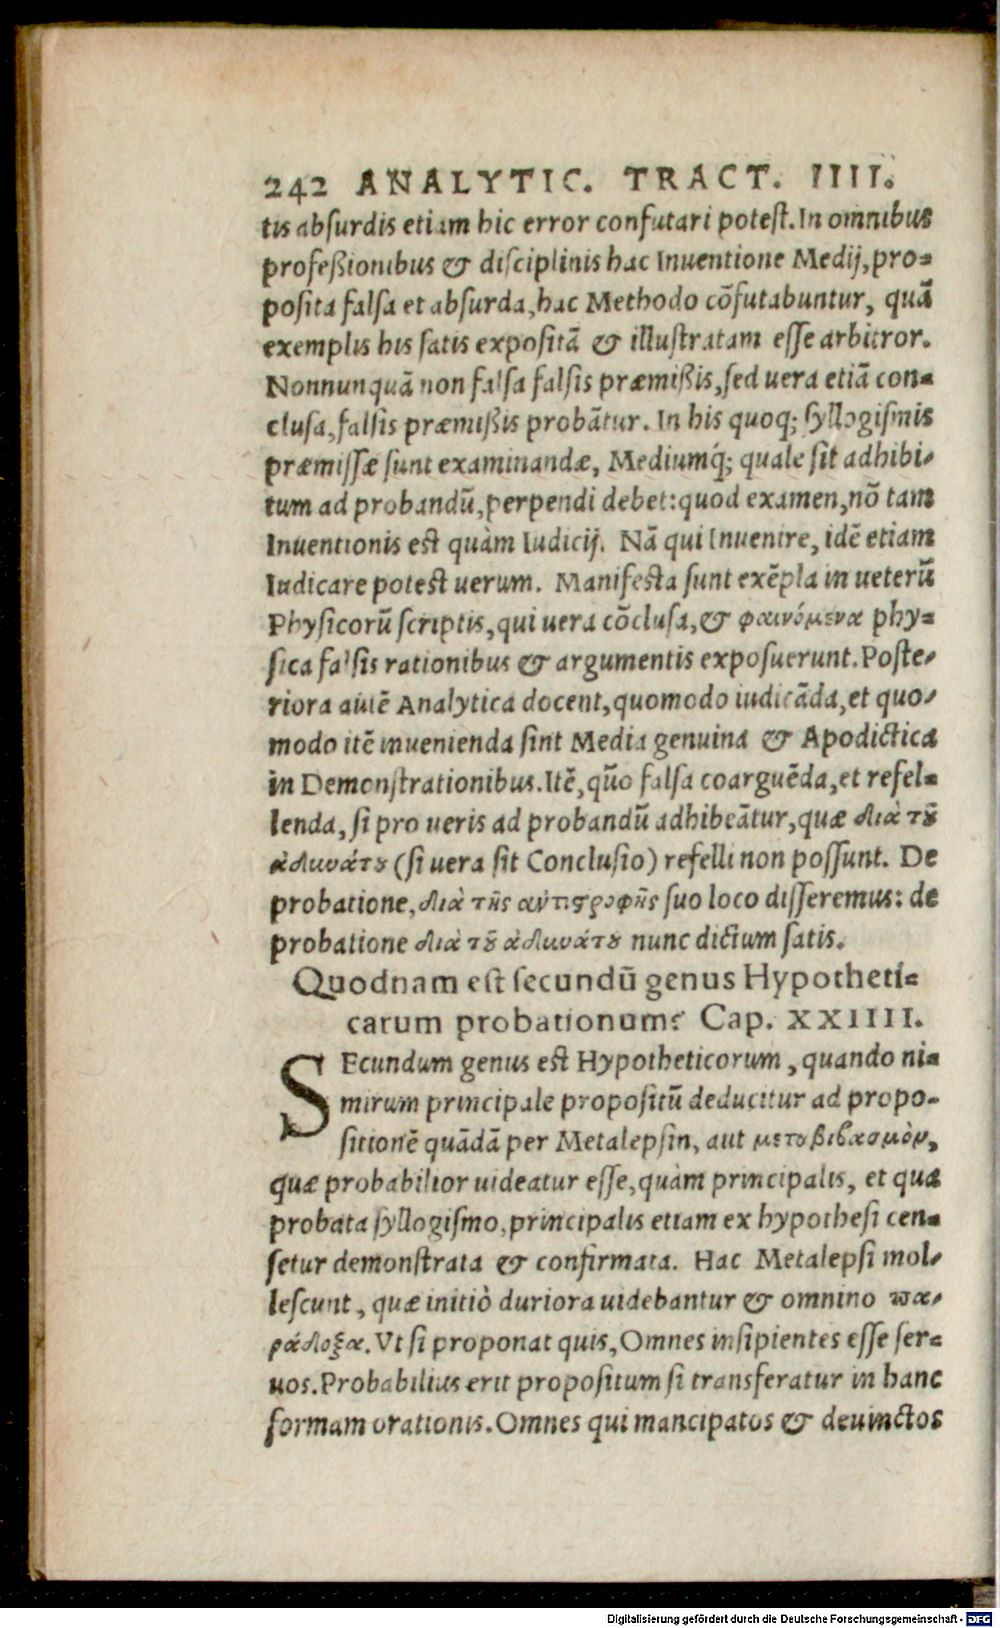 242 ANALYTIC. TRACT. IIII.
tis absurdis etiam hic error confutari potest. In omnibus
profeßionibus & disciplinis hac Inuentione Medij, pro=
posita falsa et absurda, hac Methodo cõfutabuntur, quã
exemplis his satis expositã & illustratam esse arbitror.
Nonnunquã non falsa falsis præmißis, sed uera etiã con=
clusa, falsis præmißis probãtur. In his quoq; syllogismis
præmissæ sunt examinandæ, Mediumq́; quale sit adhibi-
tum ad probandũ, perpendi debet: quod examen, nõ tam
Inuentionis est quàm Iudicij. Nã qui Inuenire, idẽ etiam
Iudicare potest uerum. Manifesta sunt exẽpla in ueterũ
Physicorũ scriptis, qui uera cõclusa, & φαινόμενα phy=
sica falsis rationibus & argumentis exposuerunt. Poste-
riora autẽ Analytica docent, quomodo iudicãda, et quo-
modo itẽ inuenienda sint Media genuina & Apodictica
in Demonstrationibus. Itẽ, qũo falsa coarguẽda, et refel=
lenda, si pro ueris ad probandũ adhibeãtur, quæ διὰ τȣ͂
ἀδυνάτȣ (si uera sit Conclusio) refelli non possunt. De
probatione, διὰ τῆς ἀντιϛροφῆς suo loco disseremus: de
probatione διὰ τȣ͂ ἀδυνάτȣ nunc dictum satis.
Quodnam est secundũ genus Hypotheti=
carum probationum? Cap. XXIIII.
SEcundum genus est Hypotheticorum, quando ni=
mirum principale propositũ deducitur ad propo-
sitionẽ quãdã per Metalepsin, aut μεταβιβασμὸν,
quæ probabilior uideatur esse, quàm principalis, et qua
probata syllogismo, principalis etiam ex hypothesi cen=
setur demonstrata & confirmata. Hac Metalepsi mol-
lescunt, quæ initiò duriora uidebantur & omnino πα-
ράδοξα. Vt si proponat quis, Omnes insipientes esse ser=
uos. Probabilius erit propositum si transferatur in hanc
formam orationis. Omnes qui mancipatos & deuinctos
Digitalisierung gefördert durch die Deutsche Forschungsgemeinschaft - DFG